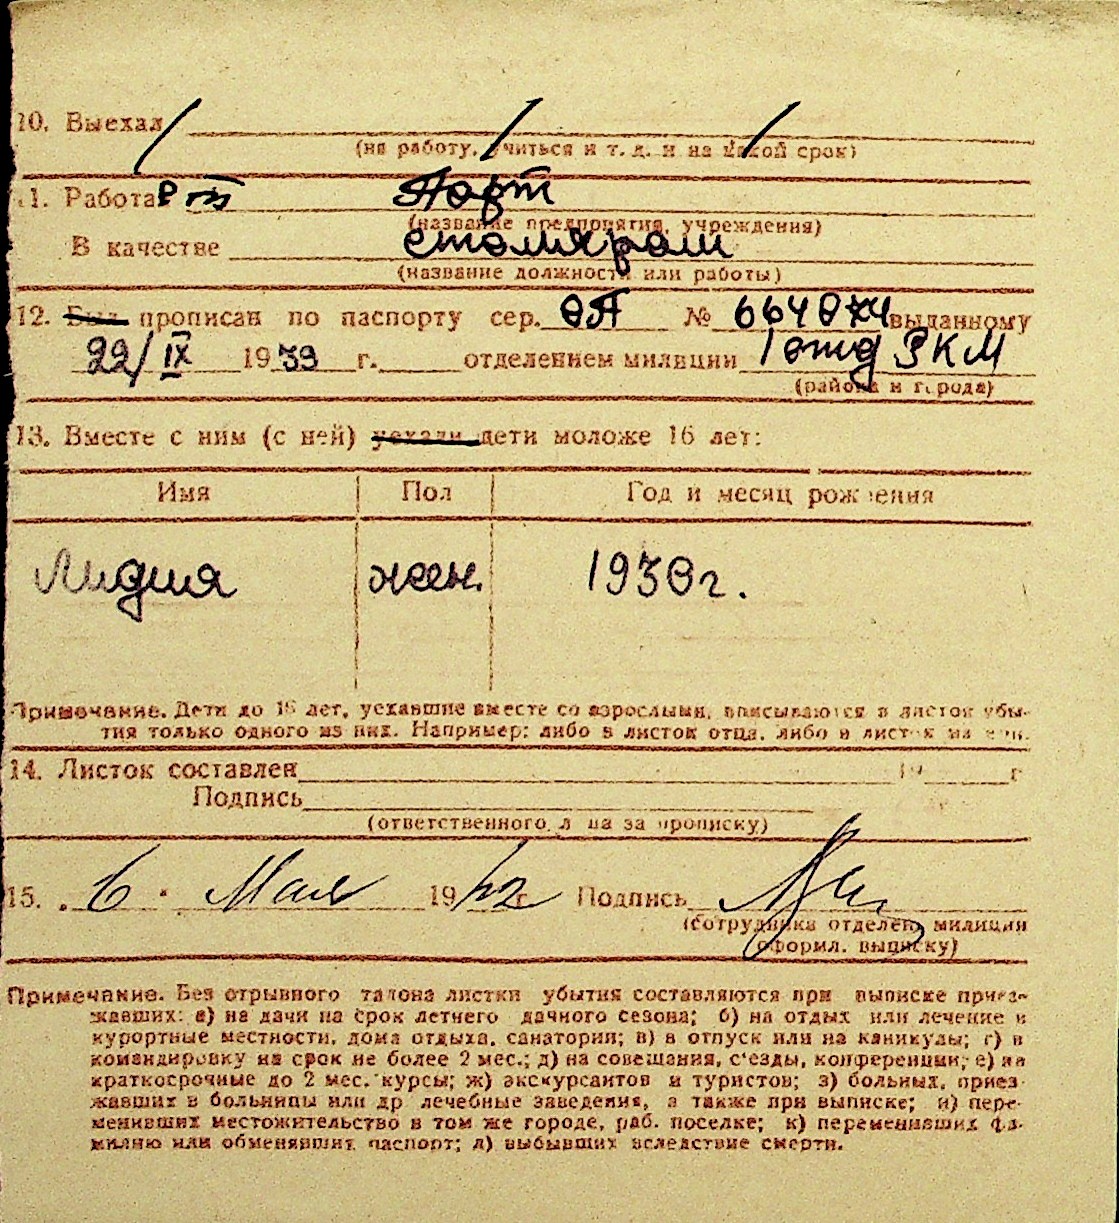 10. Выехал
(на работу, учиться и т. д. и на какой срок)
11. Работает Порт
(название предприятия, учреждения)
В качестве столяром
(название должности или работы)
12. Был прописан по паспорту сер. ОП № выданному
22/IX 1939 г. отделением милиции 1 отд РКМ
(района и города)
13. Вместе с ним (с ней) уехали дети моложе 16 лет:
Имя Пол Год и месяц рождения
Лидия жен. 1930 г.
Примечание. Дети до 16 лет, уехавшие вместе со взрослыми, вписываются в листок убы-
тия только одного из них. Например: либо в листок отца, либо в листок
14. Листок составлен 19 г
Подпись
(ответственного лица за прописку)
15. 6 Мая 1942 г Подпись
(сотрудника отделен. милиции
оформил. выписку)
Примечание. Без отрывного талона листки убытия составляются при выписке приез-
жавших: а) на дачи на срок летнего дачного сезона; б) на отдых или лечение в
курортные местности, дома отдыха, санатории; в) в отпуск или на каникулы; г) в
командировку на срок не более 2 мес.; д) на совещания, с'езды, конференции; е) на
краткосрочные до 2 мес. курсы; ж) экскурсантов и туристов; з) больных, приез-
жавших в больницы или др лечебные заведения, а также при выписке; и) пере-
менивших местожительство в том же городе, раб. поселке; к) переменивших фа-
милию или обменявших паспорт; л) выбывших вследствие смерти.